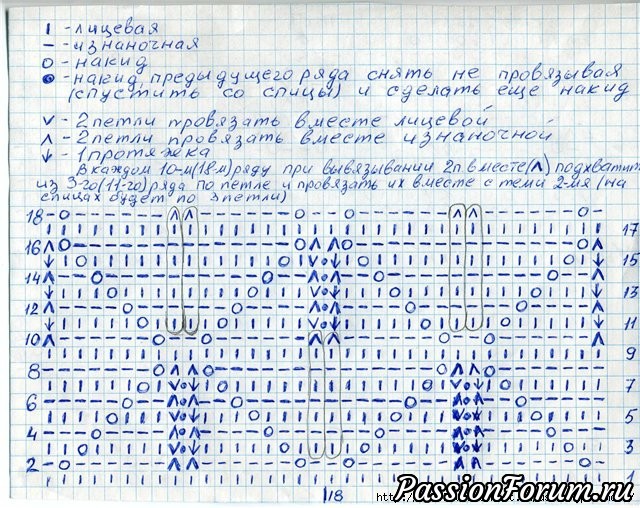 ı - лицевая
– - изнаночная
о - накид
● - накид предыдущего ряда снять не провязывая
(спустить со спицы) и сделать еще накид
v - 2 петли провязать вместе лицевой
ʌ - 2 петли провязать вместе изнаночной
↓ - 1 протяжка
В каждом 10-м(18м)ряду при вывязывании 2п вместе(ʌ) подхватить
из 3-го(11-го)ряда по петле и провязать их вместе с теми 2-мя (на
спицах будет по 3 петли)
18
17
16
15
14
13
12
11
10
9
8
7
6
5
4
3
2
1
18
PassionForum.ru